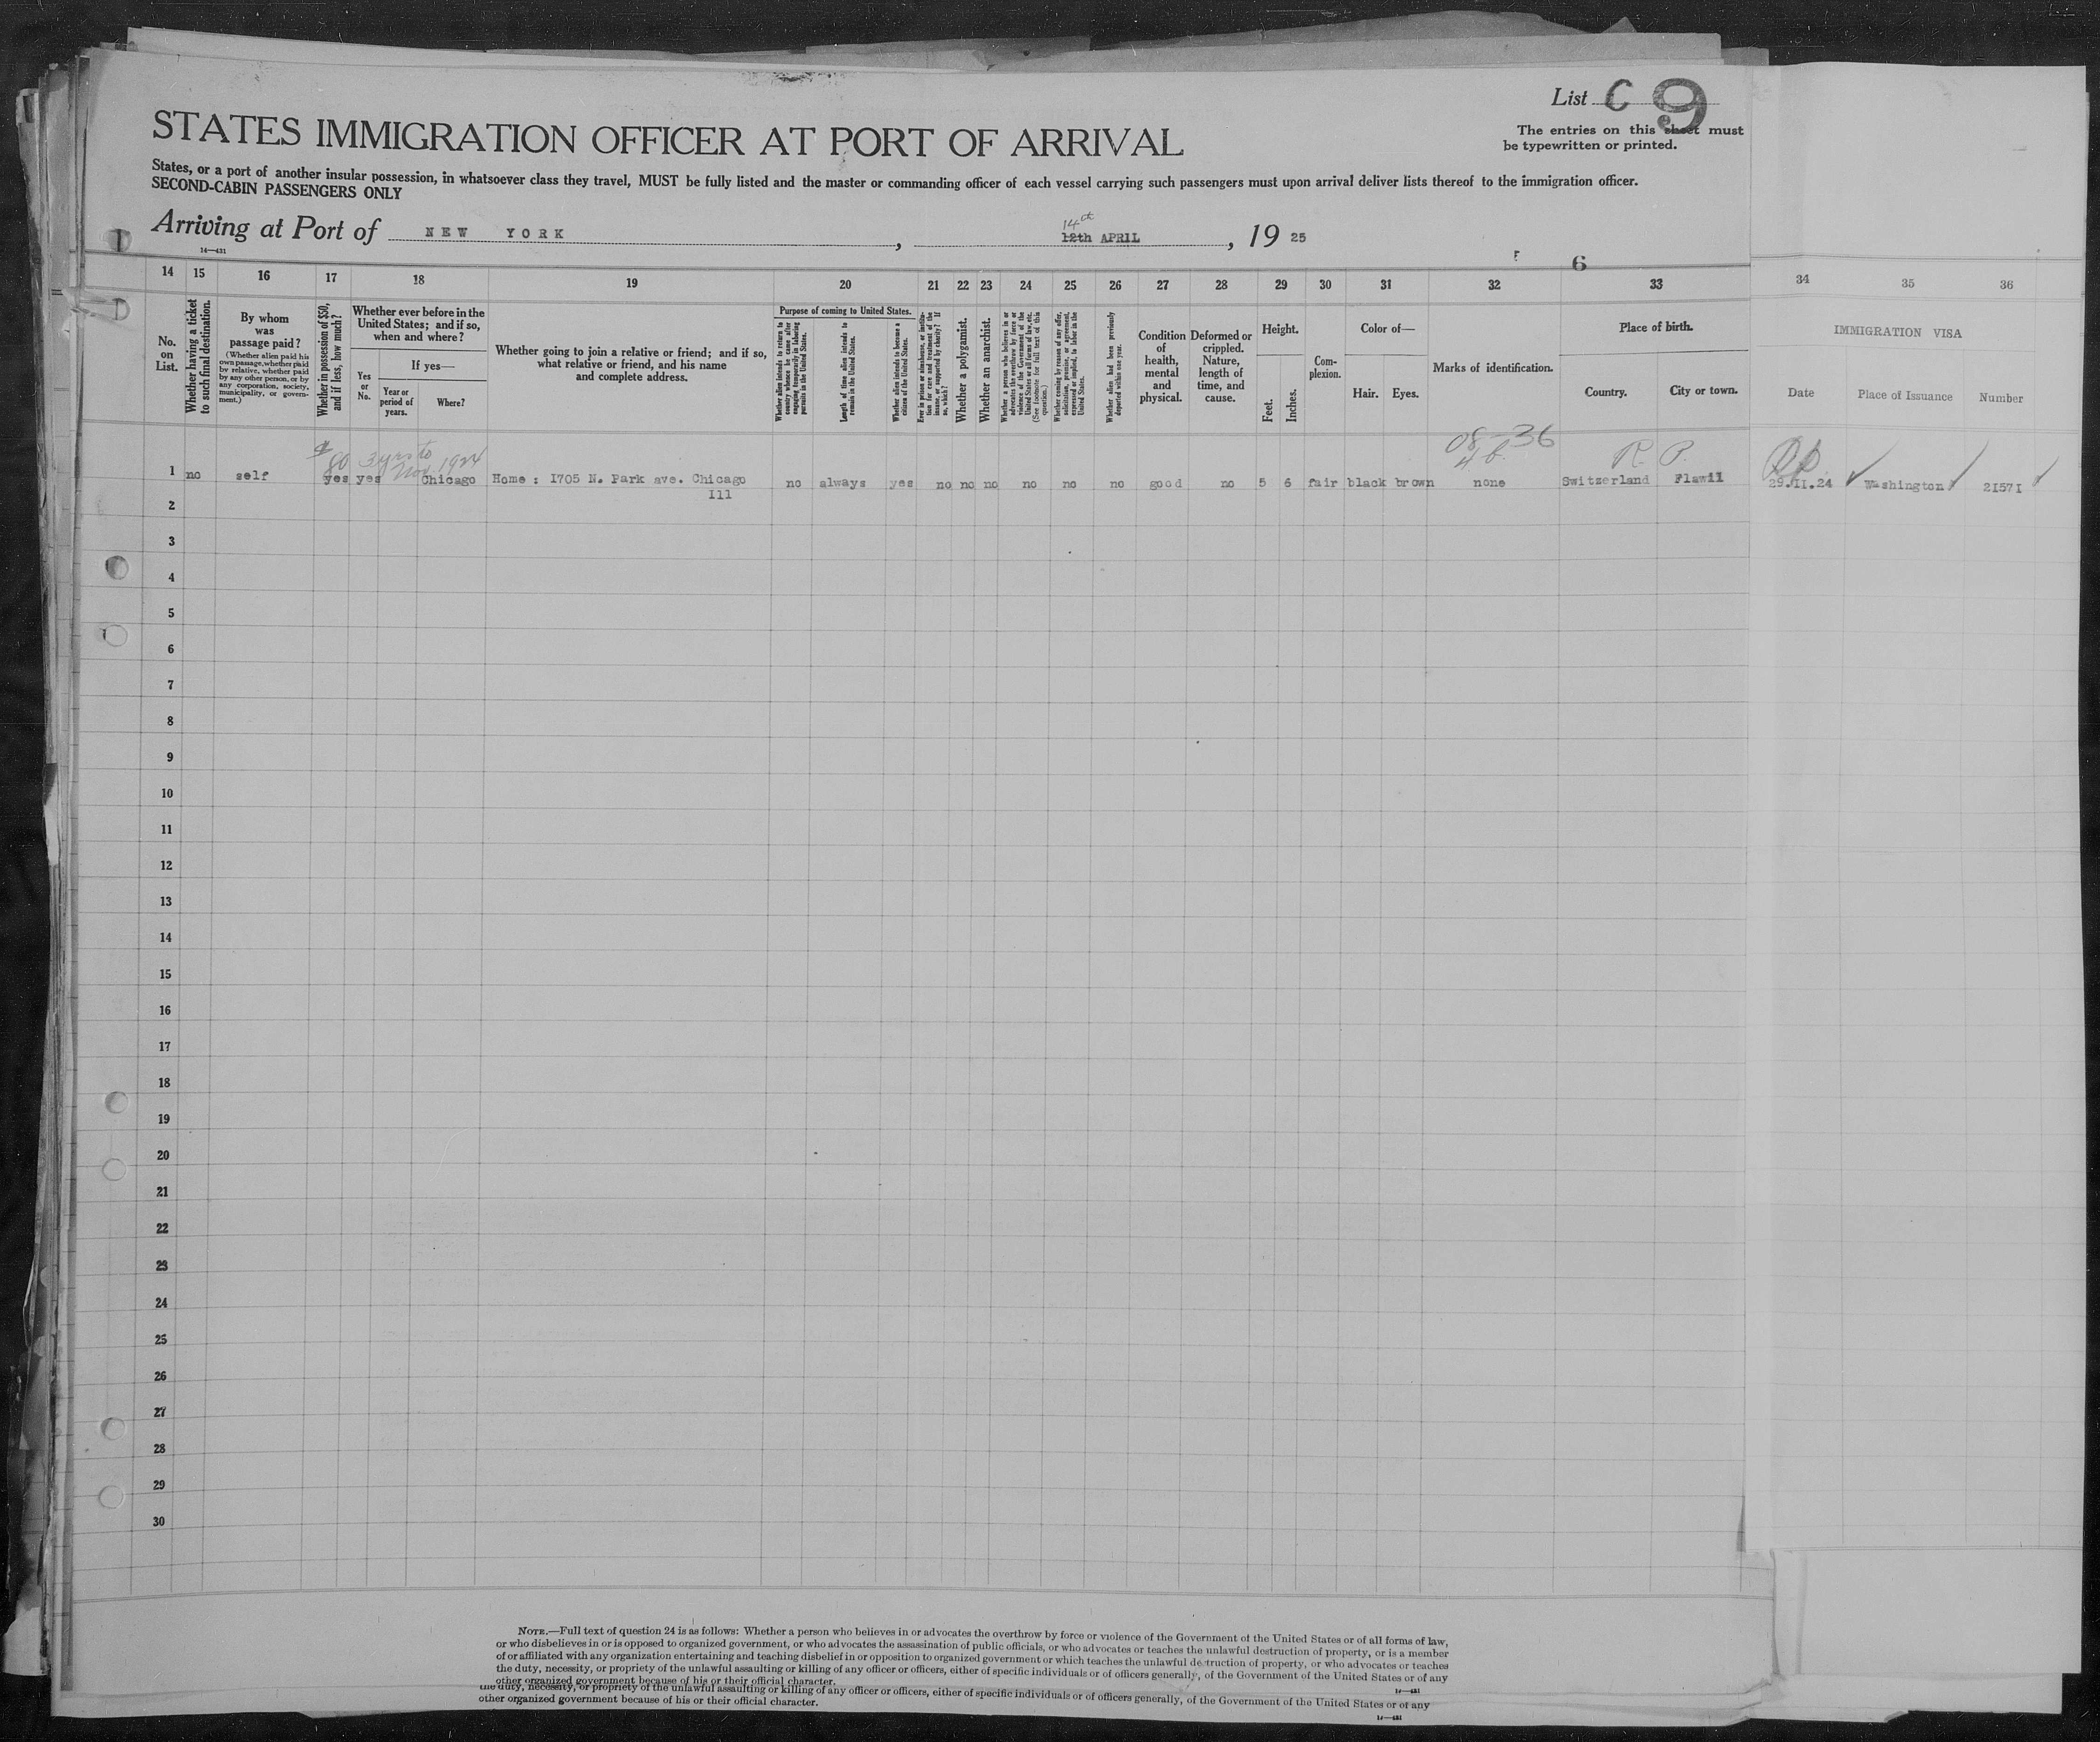 List C 9
STATES IMMIGRATION OFFICER AT PORT OF ARRIVAL
The entries on this sheet must
be typewritten or printed.
States, or a port of another insular possession, in whatsoever class they travel, MUST be fully listed and the master or commanding officer of each vessel carrying such passengers must upon arrival deliver lists thereof to the immigration officer.
SECOND-CABIN PASSENGERS ONLY
14th
Arriving at Port of NEW YORK, 12th APRIL, 19 25
14—431
6
14 15 16 17 18 19 20 21 22 23 24 25 26 27 28 29 30 31 32 33 34 35 36
No. on List.
Whether having a ticket to such final destination.
By whom was passage paid?
(Whether alien paid his own passage, whether paid by relative, whether paid by any other person, or by any corporation, society, municipality, or government.)
Whether in possession of $50, and if less, how much?
Whether ever before in the United States; and if so, when and where?
Yes or No.
If yes—
Year or period of years.
Where?
Whether going to join a relative or friend; and if so, what relative or friend, and his name and complete address.
Purpose of coming to United States.
Whether alien intends to return to country whence he came after engaging temporarily in laboring pursuits in the United States.
Length of time alien intends to remain in the United States.
Whether alien intends to become a citizen of the United States.
Ever in prison or almshouse, or institution for care and treatment of the insane, or supported by charity? If so, which?
Whether a polygamist.
Whether an anarchist.
Whether a person who believes in or advocates the overthrow by force or violence of the Government of the United States or all forms of law, etc. (See footnote for full text of this question.)
Whether coming by reason of any offer, solicitation, promise, or agreement, expressed or implied, to labor in the United States.
Whether alien had been previously deported within one year.
Condition of health, mental and physical.
Deformed or crippled. Nature, length of time, and cause.
Height.
Feet.
Inches.
Complexion.
Color of—
Hair. Eyes.
Marks of identification.
Place of birth.
Country. City or town.
IMMIGRATION VISA
Date Place of Issuance Number
$ 80 3 yrs to Nov 1924
08-36
46
R. P.
1 no self yes yes Chicago Home : 1705 N. Park ave. Chicago no always yes no no no no no no good no 5 6 fair black brown none Switzerland Flawil 29.II.24 Washington 21571
Ill
2
3
4
5
6
7
8
9
10
11
12
13
14
15
16
17
18
19
20
21
22
23
24
25
26
27
28
29
30
NOTE.—Full text of question 24 is as follows: Whether a person who believes in or advocates the overthrow by force or violence of the Government of the United States or of all forms of law,
or who disbelieves in or is opposed to organized government, or who advocates the assassination of public officials, or who advocates or teaches the unlawful destruction of property, or is a member
of or affiliated with any organization entertaining and teaching disbelief in or opposition to organized government or which teaches the unlawful destruction of property, or who advocates or teaches
the duty, necessity, or propriety of the unlawful assaulting or killing of any officer or officers, either of specific individuals or of officers generally, of the Government of the United States or of any
other organized government because of his or their official character.
14—431
the duty, necessity, or propriety of the unlawful assaulting or killing of any officer or officers, either of specific individuals or of officers generally, of the Government of the United States or of any
other organized government because of his or their official character.
14—431